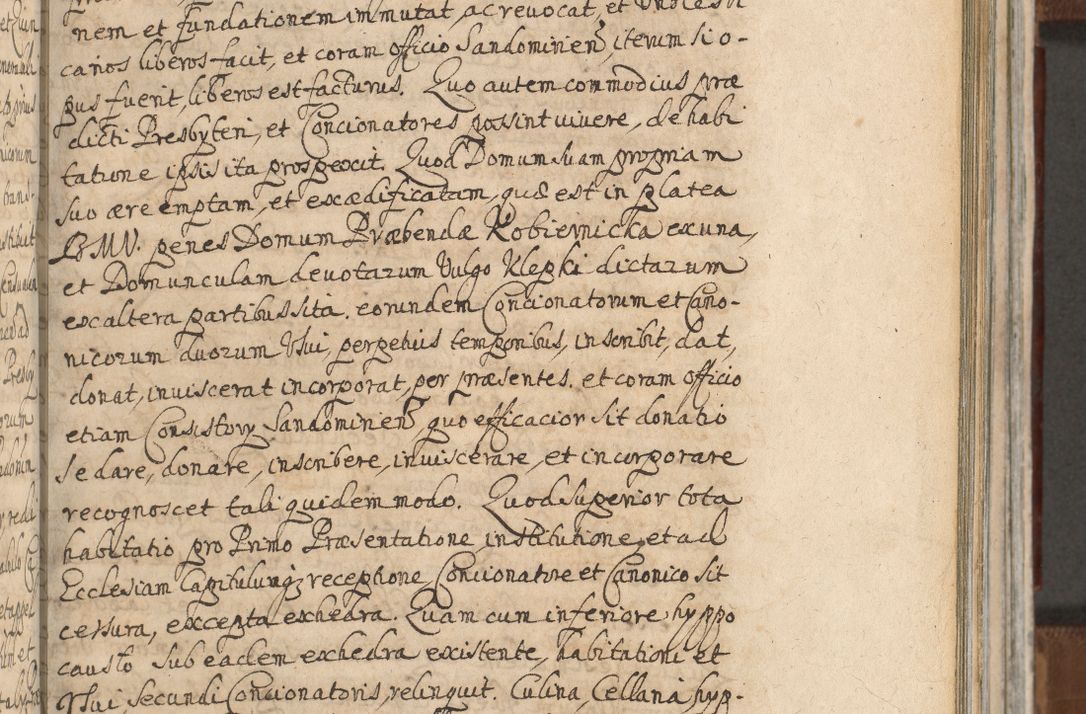 nem et fundationem immutat, ac revocat, et
canos liberos facit, et coram officio Sandominien̄, iterum si o-
pus fuerit, liberos est facturus. Quo autem commodius præ
dicti Presbyteri, et Concionatores possint vivere, de habi
tatione ipsis ita prospexit. Quod Domum suam propriam
suo ære emptam, et exædificatam, quæ est in platea
BMV. penes Domum Præbendæ Kobiernicka ex una,
et Domunculam devotarum vulgo Klepki dictarum
ex altera partibus sita, eorundem Concionatorum et Cano-
nicorum duorum Usui, perpetuis temporibus, inscribit, dat,
donat, inviscerat incorporat, per præsentes. et coram officio
etiam Consistory Sandominien̄ quo efficacior sit donatio
se dare, donare, inscribere, inviscerare, et incorporare
recognoscet tali quidem modo. Quod superior tota
habitatio pro Primo Præsentatione, institutione, et ad
Ecclesiam Capitulumq; receptione, Concionatore et Canonico sit
cessura, excepta exhedra. Quam cum inferiore hyppo
causto sub eadem exhedra existente, habitationi et
Usui secundi Concionatoris, relinquit. Culina, Cellaria hyp-